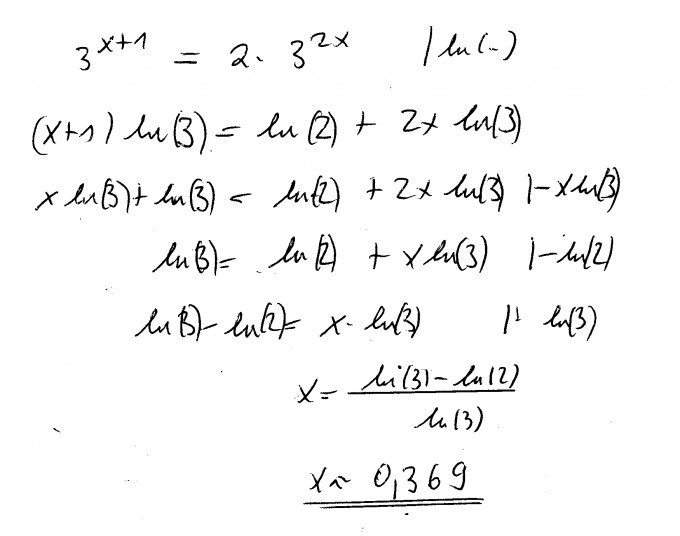 3^{x+1} = 2 · 3^{2x} | ln(..)
(x+1) ln(3) = ln(2) + 2x ln(3)
x ln(3) + ln(3) = ln(2) + 2x ln(3) | - x ln(3)
ln(3) = ln(2) + x ln(3) | - ln(2)
ln(3) - ln(2) = x · ln(3) | : ln(3)
x = \frac{ln(3) - ln(2)}{ln(3)}
x ≈ 0,369